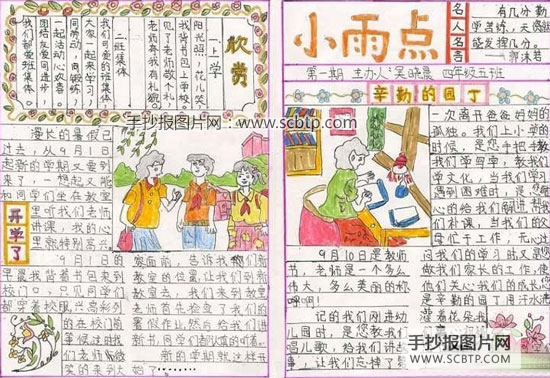 欣赏
一、上学
阳光照,花儿笑,
我背书包上学校。
见了老师敬个礼,
老师夸我有礼貌。
二、班集体
我们可爱的班集体,
大家一起来学习,
同劳动,同锻练,
一起活动心欢喜。
团结友爱同进步,
我们都爱班集体。
手抄报图片网:www.scbtp.com
漫长的暑假已
过去,从9月1日
起新的学期又要到
来了,一想起又能
和同学们坐在教室
里听我们老师
讲课,我的心
里就特别高兴
开学了
9月1日的
早晨我背着书包来到校
门口,只见同学们
都穿着校服兴高彩列
的在校门前
等候这时我
们老师微
笑的来到大
家面前,告诉我们新
教室的位置,让我们到新
教室去,我们来到教室
老师首先检查了我们的
暑假作业,然后给我们
新书,同学们都认真的听着
新的学期就这样开
始了
小雨点
名人名言
有几分勤
学苦练,天资就
能发挥几分。
——郭沫若
第一期 主办人:吴晓晨 四年级五班
辛勤的园丁
手抄报图片网:www.scbtp.com
一次离开爸爸妈妈的
孤独。我们上小学的
时候,是您手把手教
我们学写字,教我们
学文化,当我们学习
遇到困难时,是您细
心的给我们解
们补课,当我们的父
母忙于工作,无心过
9月10日是教师
节,老师是一个多么
伟大,多么美丽的称
呼啊!
记的我们刚进幼
儿园时,是您教我们
唱儿歌,给我们讲故
事,让我们忘掉了第
问我们的学习时又是您
做我们家长的工作,使
他们关心我们的成长
是辛勤的园丁用汗水浇
灌着花朵我
手抄报图片网
WWW.SCBTP.COM